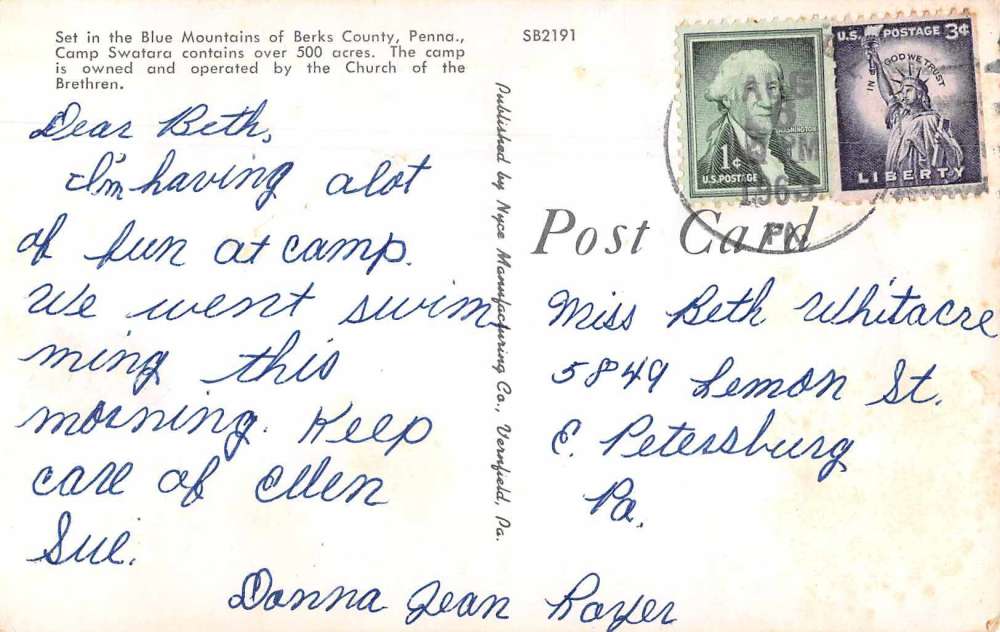 Set in the Blue Mountains of Berks County, Penna.,
Camp Swatara contains over 500 acres. The camp
is owned and operated by the Church of the
Brethren.
SB2191
Dear Beth,
I'm having alot
of fun at camp.
We went swim
ming this
morning. Keep
care of Ellen
Sue.
Donna Jean Royer
Published by Nyce Manufacturing Co., Vernfield, Pa.
Post Card
Miss Beth Whitacre
5849 Lemon St.
E. Petersburg
Pa.
WASHINGTON
1¢
U.S. POSTAGE
U.S. POSTAGE 3¢
IN GOD WE TRUST
LIBERTY
AUG
PM